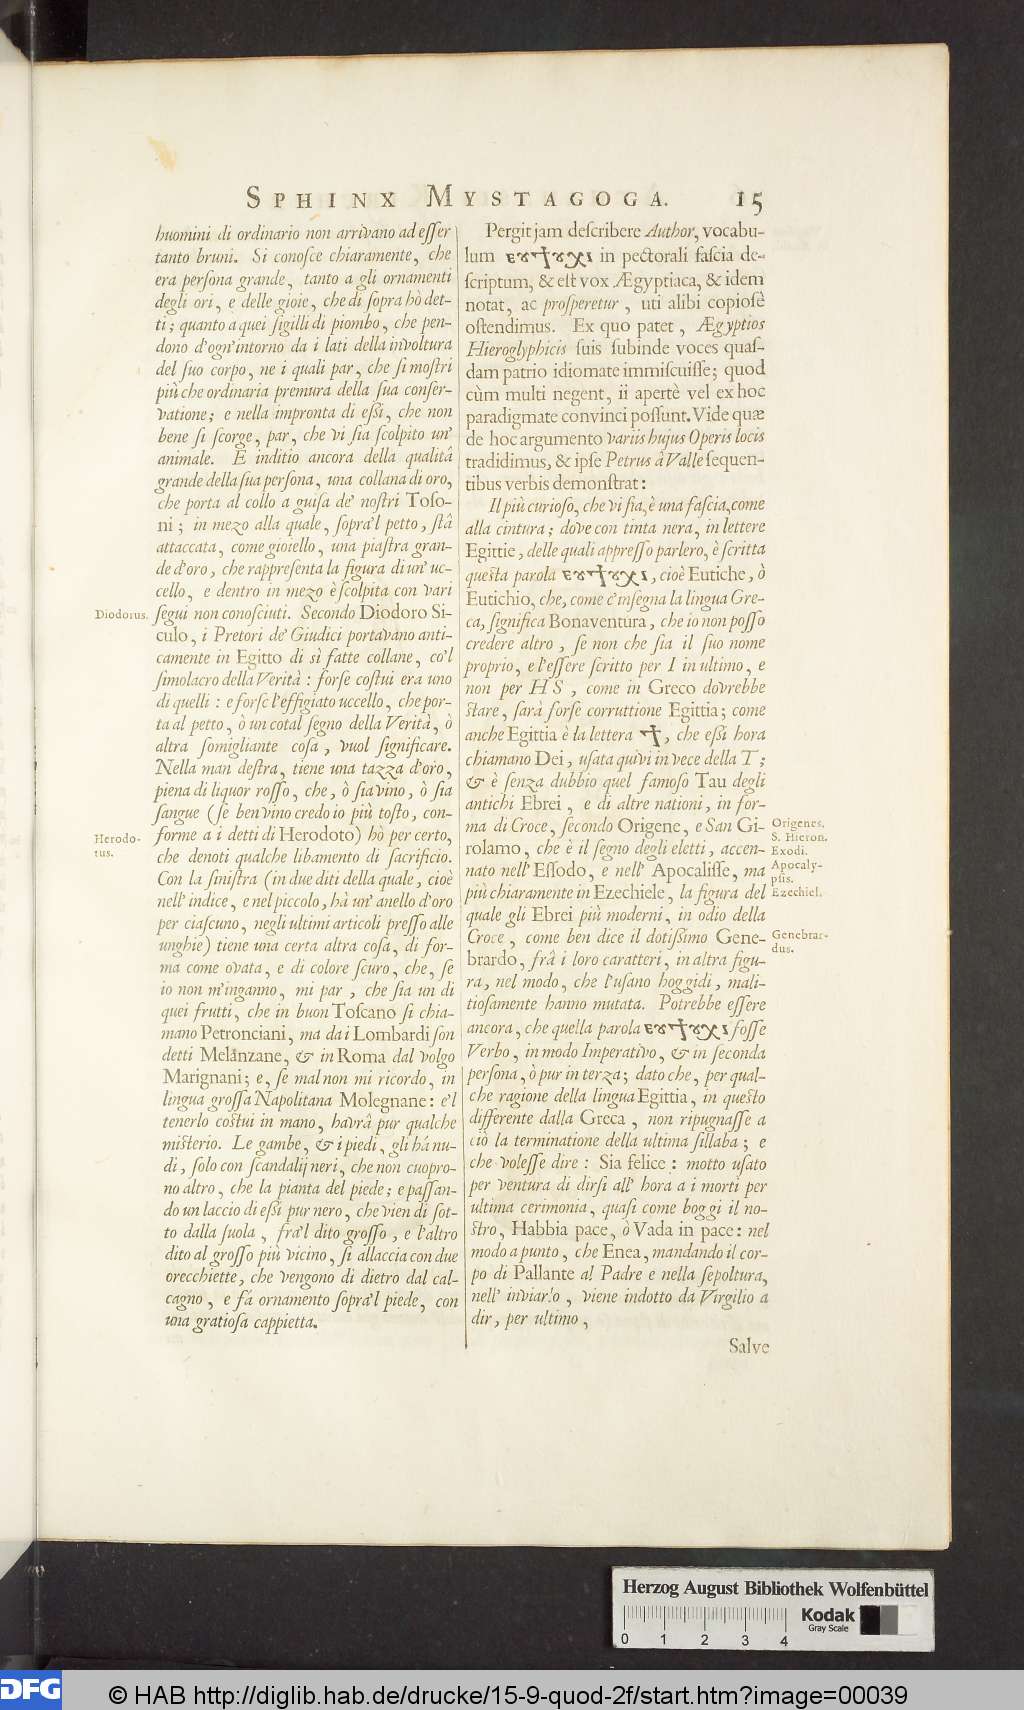 SPHINX MYSTAGOGA. 15
huomini di ordinario non arrivano ad eſſer
tanto bruni. Si conoſce chiaramente, che
era perſona grande, tanto a gli ornamenti
degli ori, e delle gioie, che di ſopra hò det-
ti; quanto a quei ſigilli di piombo, che pen-
dono d'ogn'intorno da i lati della involtura
del ſuo corpo, ne i quali par, che ſi moſtri
più che ordinaria premura della ſua conſer-
vatione; e nella impronta di eſſi, che non
bene ſi ſcorge, par, che vi ſia ſcolpito un'
animale. E inditio ancora della qualità
grande della ſua perſona, una collana di oro,
che porta al collo a guiſa de' noſtri Toſo-
ni; in mezo alla quale, ſopra'l petto, ſtà
attaccata, come gioiello, una piaſtra gran-
de d'oro, che rappreſenta la figura di un' uc-
cello, e dentro in mezo è ſcolpita con vari
Diodorus.
ſegui non conoſciuti. Secondo Diodoro Si-
culo, i Pretori de' Giudici portavano anti-
camente in Egitto di sì fatte collane, co'l
ſimolacro della Verità: forſe coſtui era uno
di quelli: e forſe l'effigiato uccello, che por-
ta al petto, ò un cotal ſegno della Verità, ò
altra ſomigliante coſa, vuol ſignificare.
Nella man deſtra, tiene una tazza d'oro,
piena di liquor roſſo, che, ò ſia vino, ò ſia
ſangue (ſe ben vino credo io più toſto, con-
Herodo-
tus.
forme a i detti di Herodoto) hò per certo,
che denoti qualche libamento di ſacrificio.
Con la ſiniſtra (in due diti della quale, cioè
nell' indice, e nel piccolo, hà un' anello d'oro
per ciaſcuno, negli ultimi articoli preſſo alle
unghie) tiene una certa altra coſa, di for-
ma come ovata, e di colore ſcuro, che, ſe
io non m'inganno, mi par, che ſia un di
quei frutti, che in buon Toſcano ſi chia-
mano Petronciani, ma da i Lombardi ſon
detti Melanzane, & in Roma dal volgo
Marignani; e, ſe mal non mi ricordo, in
lingua groſſa Napolitana Molegnane: e'l
tenerlo coſtui in mano, havrà pur qualche
miſterio. Le gambe, & i piedi, gli hà nu-
di, ſolo con ſcandalij neri, che non cuopro-
no altro, che la pianta del piede; e paſſan-
do un laccio di eſſi pur nero, che vien di ſot-
to dalla ſuola, fra'l dito groſſo, e l'altro
dito al groſſo più vicino, ſi allaccia con due
orecchiette, che vengono di dietro dal cal-
cagno, e fà ornamento ſopra'l piede, con
una gratioſa cappietta.
Pergit jam deſcribere Author, vocabu-
lum ⲉⲩϯⲩⲭⲓ in pectorali faſcia de-
ſcriptum, & eſt vox Ægyptiaca, & idem
notat, ac proſperetur, uti alibi copioſè
oſtendimus. Ex quo patet, Ægyptios
Hieroglyphicis ſuis ſubinde voces quaſ-
dam patrio idiomate immiſcuiſſe; quod
cùm multi negent, ii apertè vel ex hoc
paradigmate convinci poſſunt. Vide quæ
de hoc argumento variis hujus Operis locis
tradidimus, & ipſe Petrus à Valle ſequen-
tibus verbis demonſtrat:
Il più curioſo, che vi ſia, è una faſcia, come
alla cintura; dove con tinta nera, in lettere
Egittie, delle quali appreſſo parlero, è ſcritta
queſta parola ⲉⲩϯⲩⲭⲓ, cioè Eutiche, ò
Eutichio, che, come c'inſegna la lingua Gre-
ca, ſignifica Bonaventura, che io non poſſo
credere altro, ſe non che ſia il ſuo nome
proprio, e l'eſſere ſcritto per I in ultimo, e
non per H S, come in Greco dovrebbe
ſtare, ſarà forſe corruttione Egittia; come
anche Egittia è la lettera ϯ, che eſſi hora
chiamano Dei, uſata quivi in vece della T;
& è ſenza dubbio quel famoſo Tau degli
antichi Ebrei, e di altre nationi, in for-
ma di Croce, ſecondo Origene, e San Gi-
rolamo, che è il ſegno degli eletti, accen-
nato nell' Eſſodo, e nell' Apocaliſſe, ma
più chiaramente in Ezechiele, la figura del
quale gli Ebrei più moderni, in odio della
Croce, come ben dice il dotiſſimo Gene-
brardo, frà i loro caratteri, in altra figu-
ra, nel modo, che l'uſano hoggidi, mali-
tioſamente hanno mutata. Potrebbe eſſere
ancora, che quella parola ⲉⲩϯⲩⲭⲓ foſſe
Verbo, in modo Imperativo, & in ſeconda
perſona, ò pur in terza; dato che, per qual-
che ragione della lingua Egittia, in queſto
differente dalla Greca, non ripugnaſſe a
ciò la terminatione della ultima ſillaba; e
che voleſſe dire: Sia felice: motto uſato
per ventura di dirſi all' hora a i morti per
ultima cerimonia, quaſi come boggi il no-
ſtro, Habbia pace, ò Vada in pace: nel
modo a punto, che Enea, mandando il cor-
po di Pallante al Padre e nella ſepoltura,
nell' inviarlo, viene indotto da Virgilio a
dir, per ultimo,
Salve
Origenes.
S. Hieron.
Exodi.
Apocaly-
pſis.
Ezechiel.
Genebrar-
dus.
Herzog August Bibliothek Wolfenbüttel
Kodak
Gray Scale
0 1 2 3 4
DFG
© HAB http://diglib.hab.de/drucke/15-9-quod-2f/start.htm?image=00039